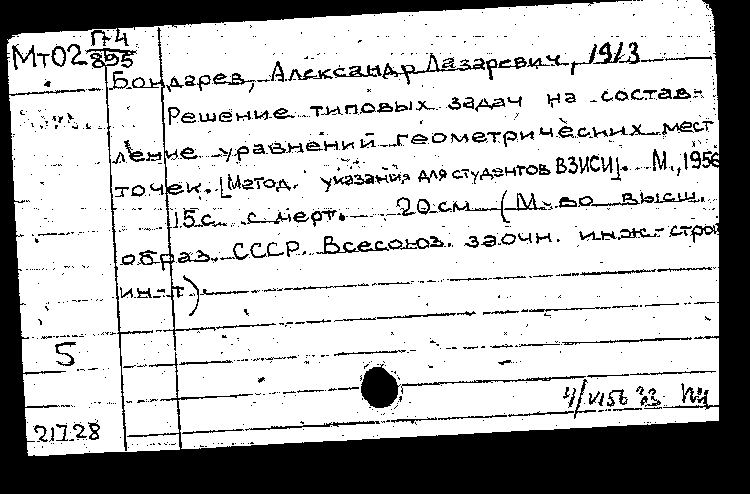 Мт02 П-4/895
Бондарев, Александр Лазаревич, 1913
Решение типовых задач на состав-
ление уравнений геометрических мест
точек. [Метод. указания для студентов ВЗИСИ]. М., 1956
15с. с черт. 20см (М-во высш.
образ. СССР. Всесоюз. заочн. инж.-строй
ин-т).
5
21728